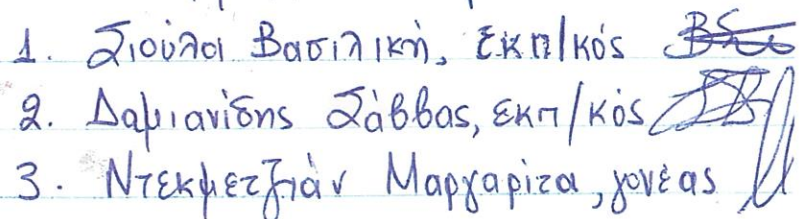 1. Σιούλα Βασιλική, εκπ/κός
2. Δαμιανίδης Σάββας, εκπ/κός
3. Ντεκμετζιάν Μαργαρίτα, γονέας